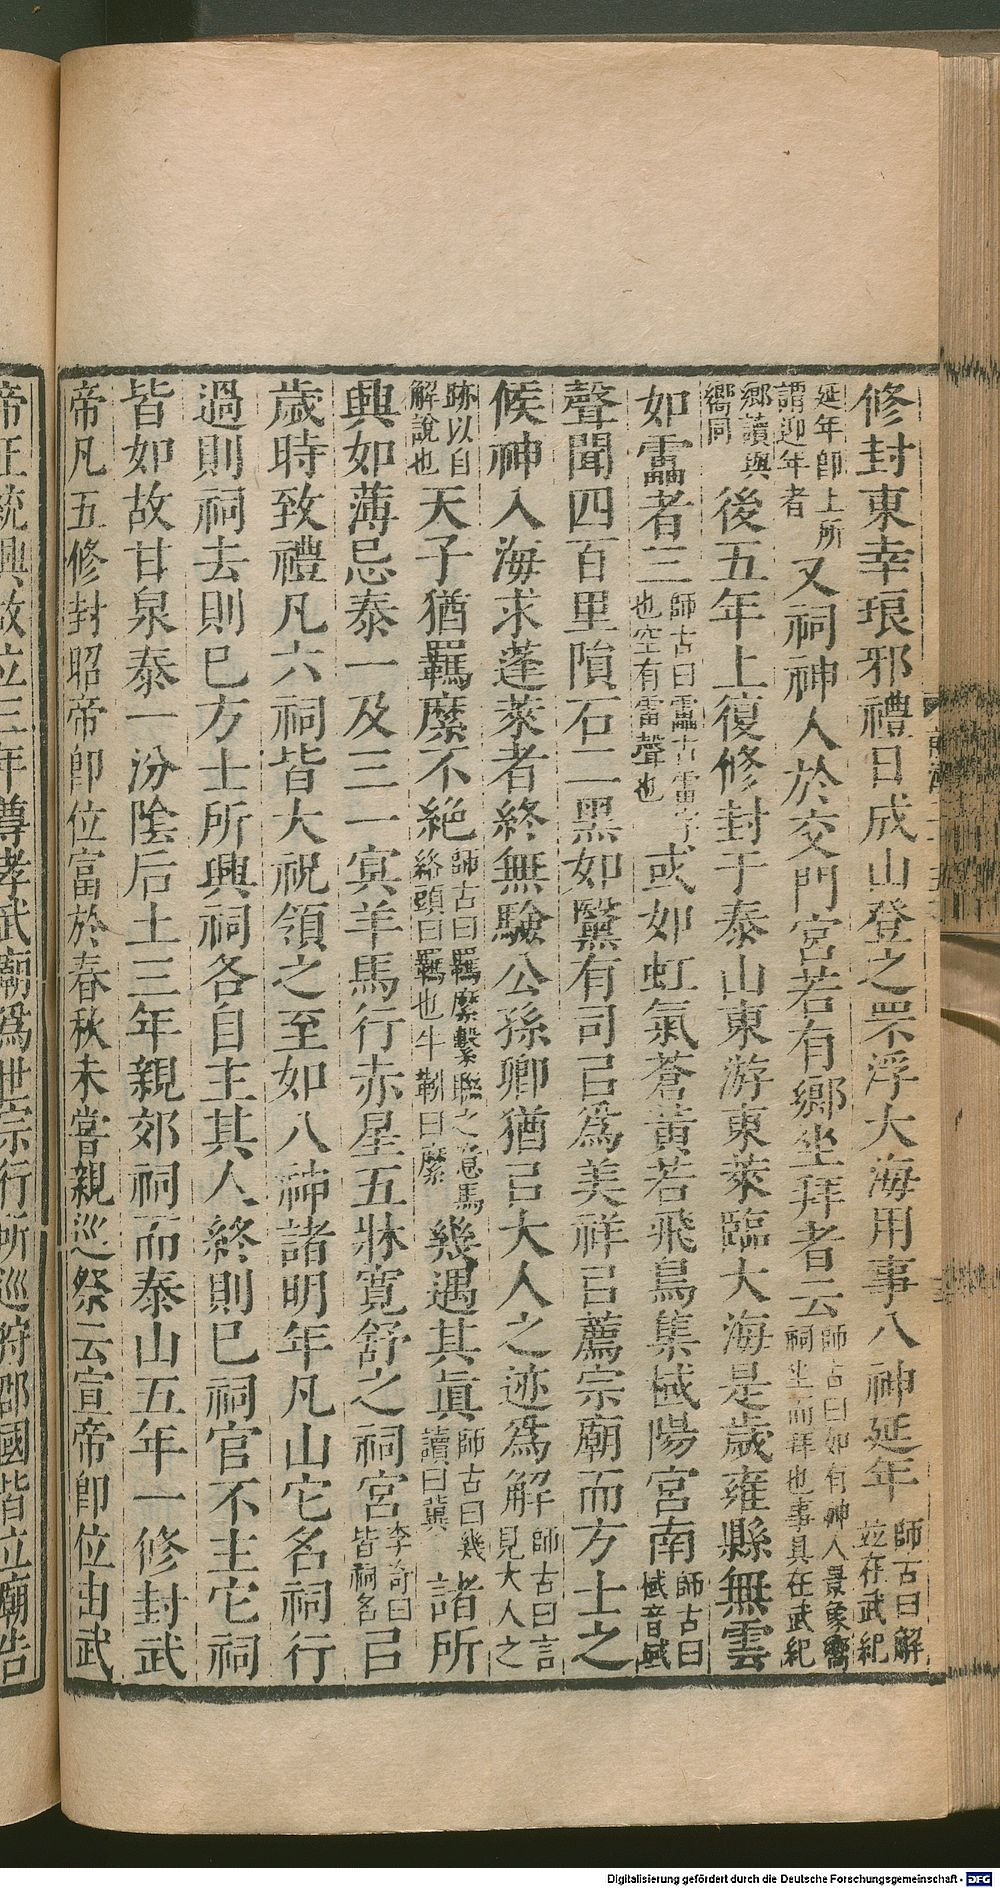 修封東幸琅邪禮日成山登之罘浮大海用事八神延年師古曰解並在武紀
延年卽上所謂迎年者又祠神人於交門宮若有鄉坐拜者云師古曰如有神人景象嚮祠坐而拜也事具在武紀
鄉讀與嚮同後五年上復修封于泰山東游東萊臨大海是歲雍縣無雲
如靁者三師古曰靁古雷字也空有雷聲也或如虹氣蒼黃若飛鳥集棫陽宮南師古曰棫音域
聲聞四百里隕石二黑如黳有司㠯爲美祥㠯薦宗廟而方士之
候神入海求蓬萊者終無驗公孫卿猶㠯大人之迹爲解師古曰言見大人之
跡以自解說也天子猶羈縻不絕師古曰羈縻繫聯之意馬絡頭曰羈也牛靷曰縻幾遇其眞師古曰幾讀曰冀諸所
興如薄忌泰一及三一冥羊馬行赤星五牀寬舒之祠宮李奇曰皆祠名㠯
歲時致禮凡六祠皆大祝領之至如八神諸明年凡山它名祠行
過則祠去則已方士所興祠各自主其人終則已祠官不主它祠
皆如故甘泉泰一汾陰后土三年親郊祠而泰山五年一修封武
帝凡五修封昭帝卽位富於春秋未嘗親巡祭云宣帝卽位由武
帝正統興故立三年尊孝武廟爲世宗行所巡狩郡國皆立廟告
Digitalisierung gefördert durch die Deutsche Forschungsgemeinschaft - DFG